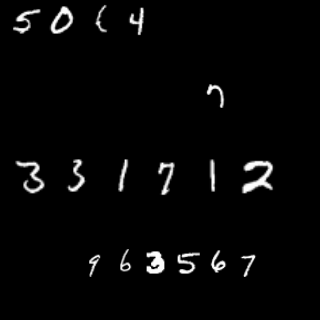 50(4
7
331712
963567